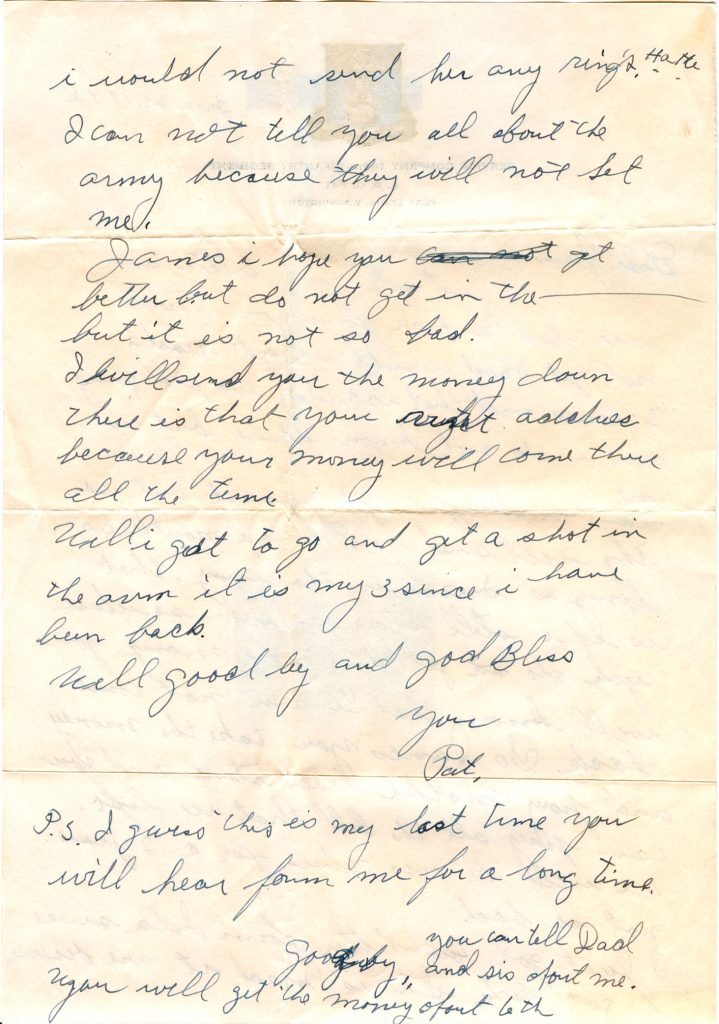 i would not send her any ring's. Ha He
I can not tell you all about the
army because they will not let
me.
James i hope you can not get
better but do not get in the
but it is not so bad.
I will send you the money down
there is that your right address
because your money will come there
all the time
Well i got to go and get a shot in
the arm it is my 3 since i have
been back.
Well good by and god Bless
you
Pat,
P.S. I guess this is my last time you
will hear form me for a long time.
goodby, you can tell Dad
and sis about me.
you will get the money about 6th